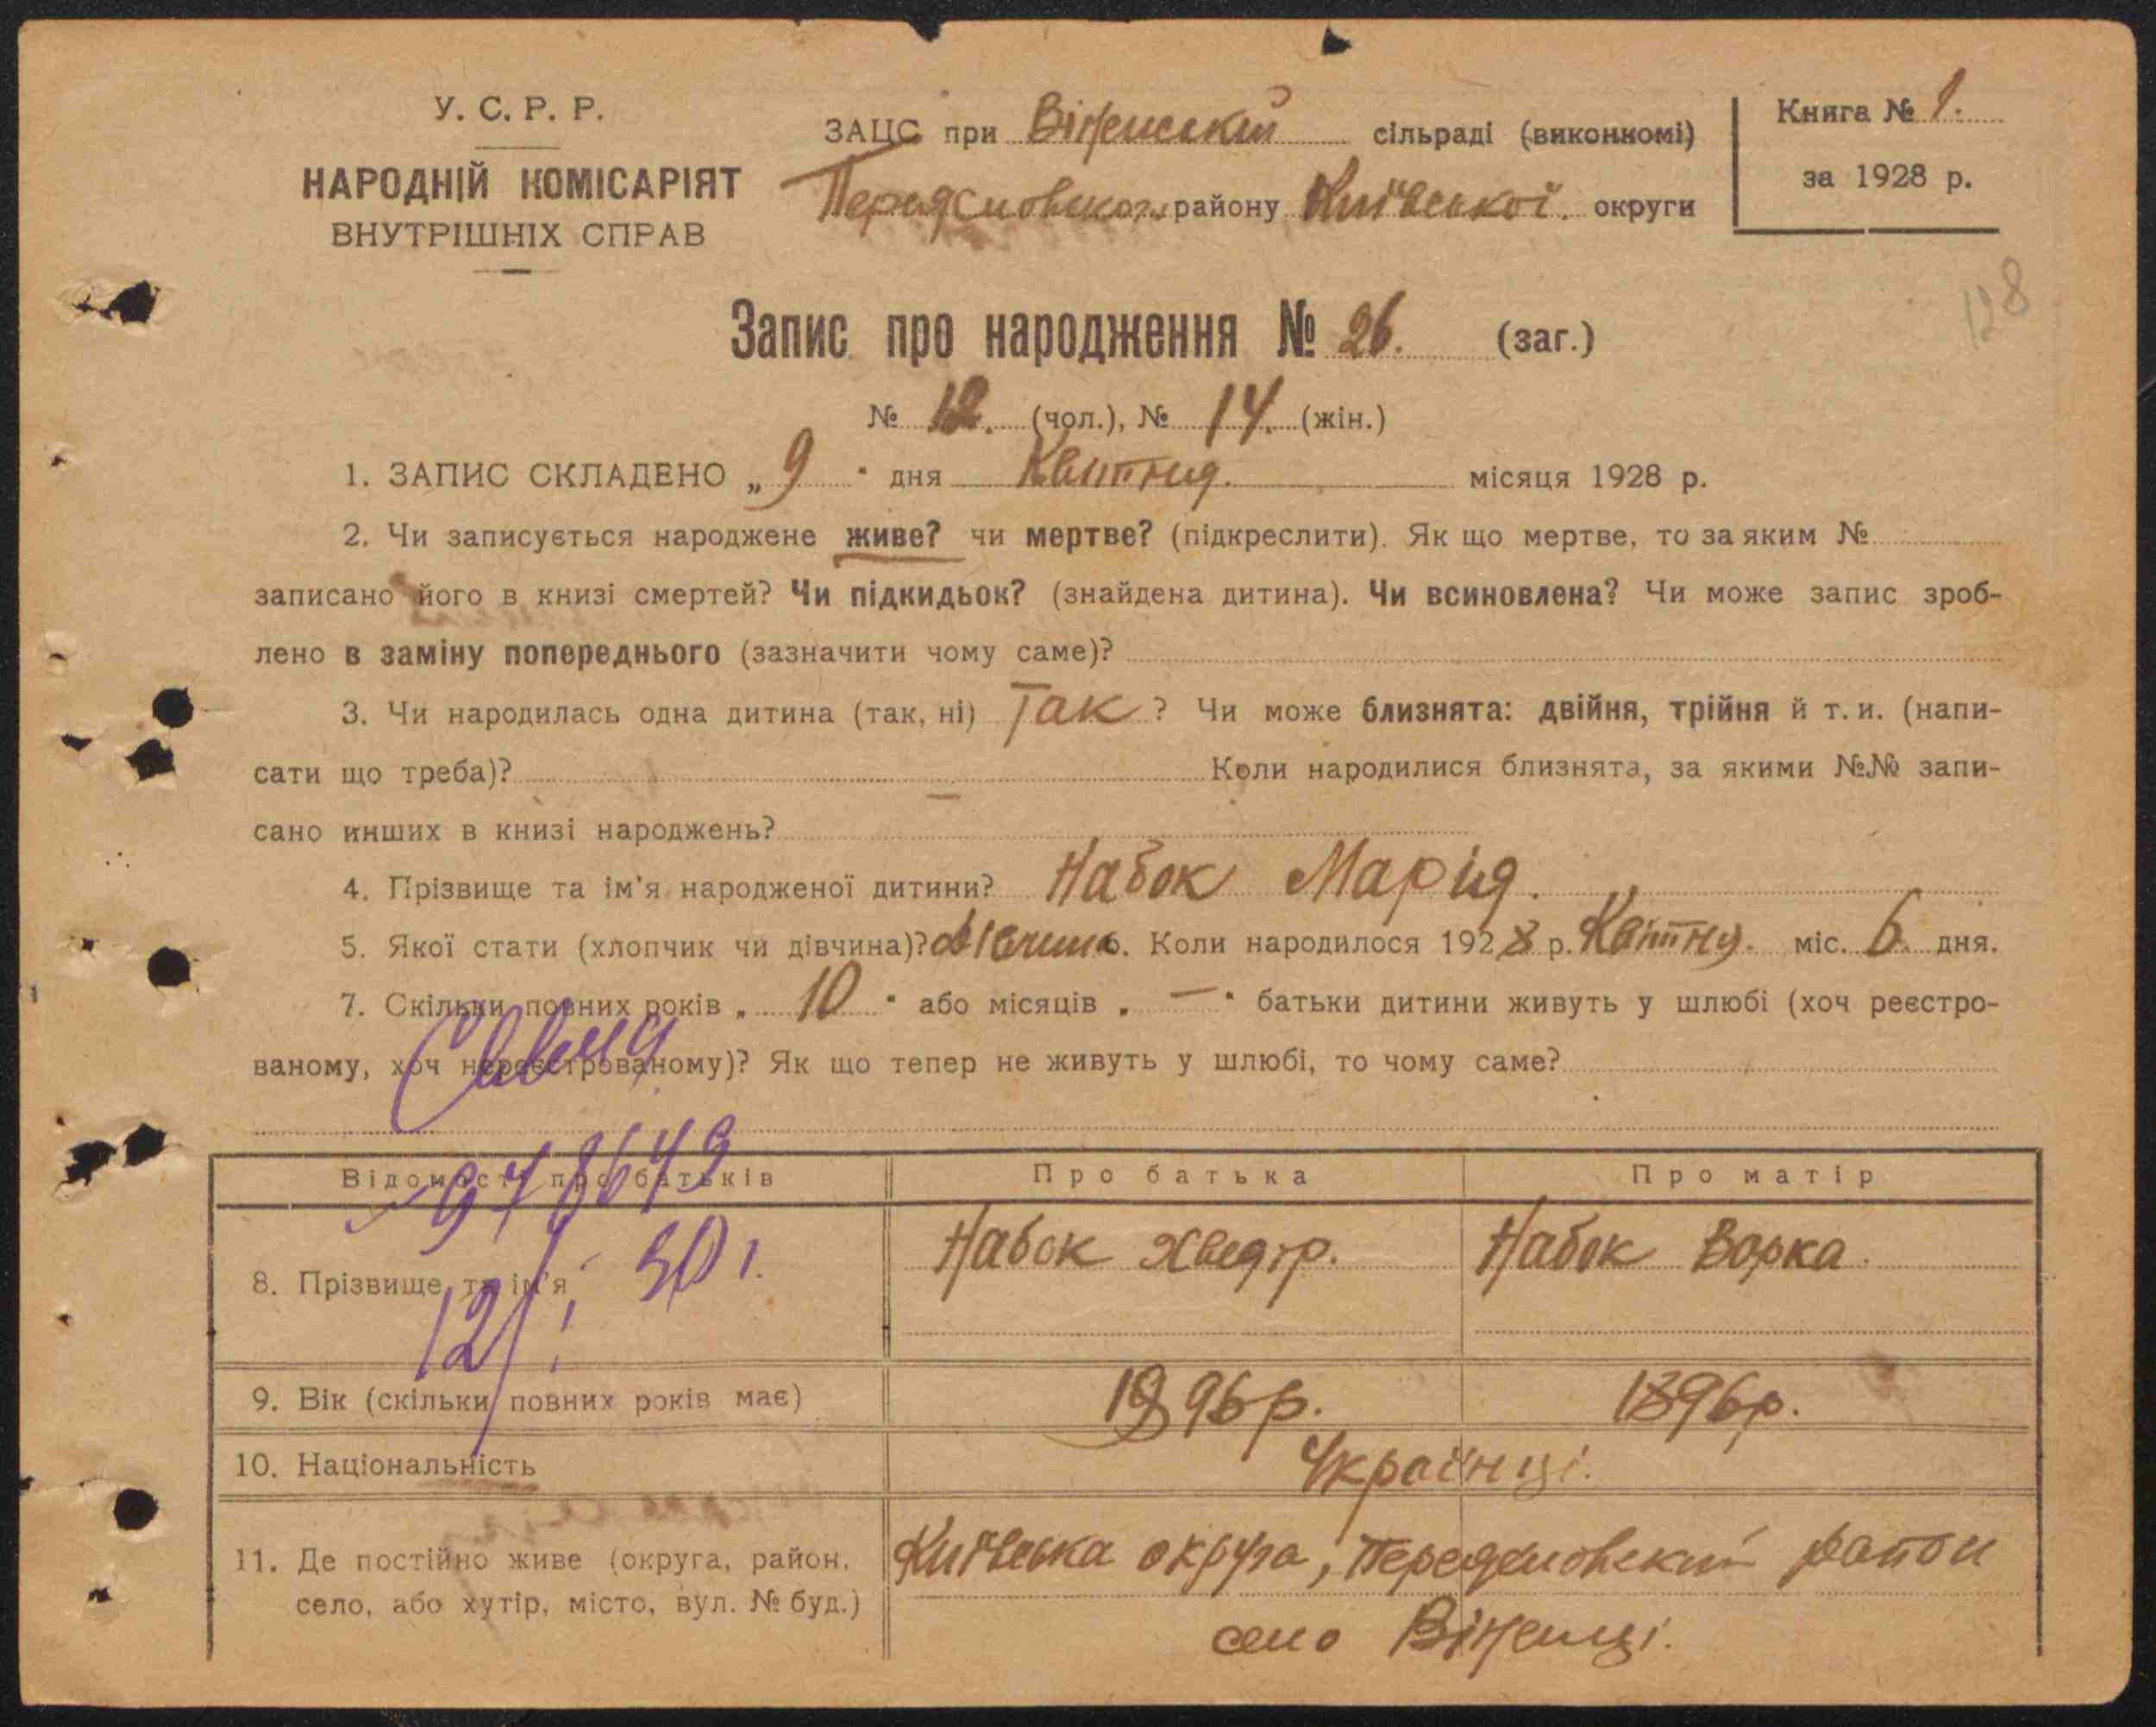 У. С. Р. Р.
НАРОДНІЙ КОМІСАРІЯТ
ВНУТРІШНІХ СПРАВ
ЗАЦС при сільраді (виконкомі)
району Київської округи
Книга № 1.
за 1928 р.
128
Запис про народження № 26. (заг.)
№ 12. (чол.), № 14. (жін.)
1. ЗАПИС СКЛАДЕНО „ 9 " дня Квітня. місяця 1928 р.
2. Чи записується народжене живе? чи мертве? (підкреслити). Як що мертве, то за яким №
записано його в книзі смертей? Чи підкидьок? (знайдена дитина). Чи всиновлена? Чи може запис зроб-
лено в заміну попереднього (зазначити чому саме)?
3. Чи народилась одна дитина (так, ні) Так ? Чи може близнята: двійня, трійня й т. и. (напи-
сати що треба)? Коли народилися близнята, за якими №№ запи-
сано инших в книзі народжень?
4. Прізвище та ім'я народженої дитини? Набок Марія.
5. Якої стати (хлопчик чи дівчина)? Коли народилося 1928 р. Квітня. міс. 6. дня.
7. Скільки повних років „ 10 " або місяців „ — " батьки дитини живуть у шлюбі (хоч реєстро-
ваному, хоч нереєстрованому)? Як що тепер не живуть у шлюбі, то чому саме?
Відомості про батьків Про батька Про матір
8. Прізвище та ім'я Набок Хведір. Набок Ворка.
978649
12/I 50 г.
9. Вік (скільки повних років має) 1896р. 1896р.
10. Національність Українці.
11. Де постійно живе (округа, район, Київська округа, район
село, або хутір, місто, вул. № буд.) село